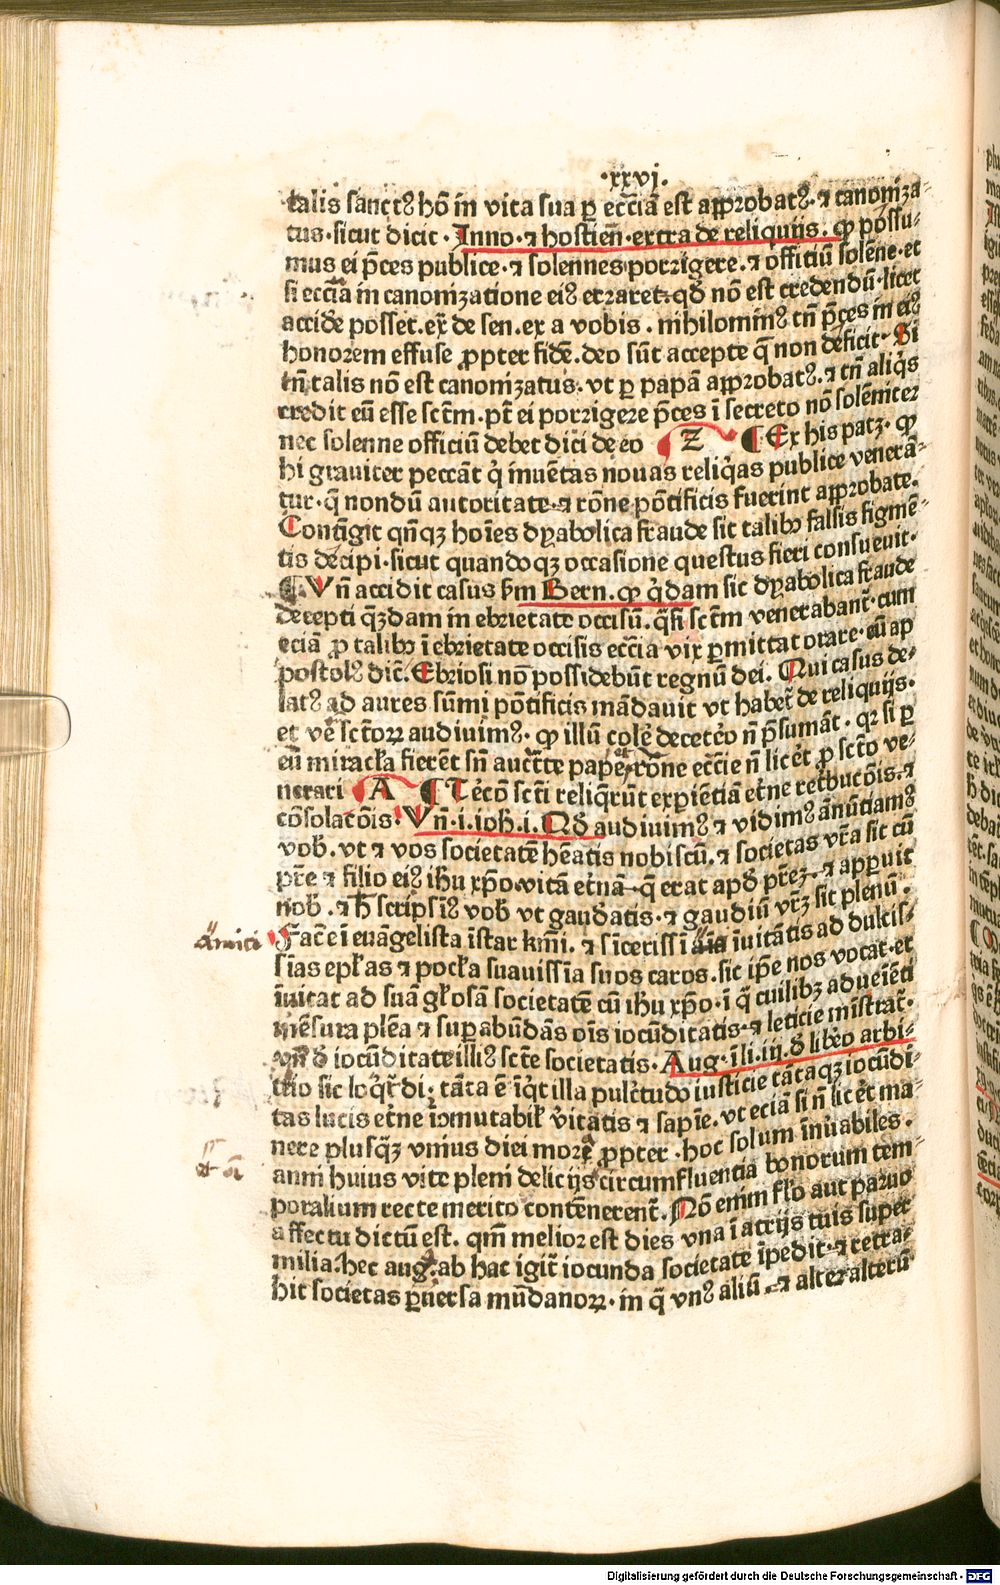 ·xxvj·
talis sanctꝰ hō in vita sua ꝑ eccīā est approbatꝰ· ⁊ canoniza-
tus· sicut dicit · Inno· ⁊ hostien̄· extra de reliquijs· ꝙ possu-
mus ei p̄ces publice· ⁊ solennes porrigere· ⁊ officiū solēne· et
si eccīa in canonizatione eiꝰ erraret· qđ nō est credendū· licet
accidē posset· ex̄ de sen· ex a vobis · nihilominꝰ tn̄ p̄ces in eiꝰ
honorem effuse ꝓpter fidē· deo sūt accepte q̄ non deficit· Si
tn̄ talis nō est canonizatus· vt ꝑ papā approbatꝰ· ⁊ tn̄ aliq̇s
credit eū esse sctm̄· pt̄ ei porrigere p̄ces ī secreto nō solēniter
nec solenne officiū debet dici de eo Z ¶ Ex his patꝫ· ꝙ
hi grauiter peccāt q̇ inuētas nouas reliq̇as publice venerā-
tur· q̄ nondū autoritate· ⁊ rōne pōtificis fuerint approbate·
Contīgit qn̄qꝫ hoīes dyabolica fraude sic talibꝰ falsis figmē-
tis decipi· sicut quandoqꝫ occasione questus fieri consueuit·
¶ Vn̄ accidit casus ẜm Bern· ꝙ q̇dam sic dyabolica fraude
decepti q̄ꝫdam in ebrietate occisū· q̄si sctm̄ venerabant̄· cum
eciā ꝓ talibꝰ ī ebrietate occisis eccīa vix ꝑmittat orare· cū ap
postolꝰ dic̄· Ebriosi nō possidebūt regnū dei· Qui casus de-
latꝰ ad aures sūmi pōtificis mādauit vt habet̄ de reliquijs·
et vē sctoꝝ audiuimꝰ· ꝙ illū colē decetēo n̄ p̄sumāt · qꝛ si ꝑ
eū miracła fierēt sn̄ auctt̄te pape et rōne eccīe n̄ licēt ꝓ sctō ve-
nerari A ¶ Tēcō scti reliq̄rūt exp̄iētiā et̄ne ret̄bucōis· ⁊
cōsolacōis· Vn̄· i· ioh̄· i· Qđ audiuimꝰ ⁊ vidimꝰ ānūtiamꝰ
vob̄· vt ⁊ vos societatē h̄eatis nobiscū· ⁊ societas vr̄a sit cū
pr̄e ⁊ filio eiꝰ ihu xp̄o· vitā et̄nā· q̄ erat apđ pr̄eꝫ· ⁊ apparuit
nob̄· ⁊ h̄ scripsīꝰ vob̄ vt gaudatis· ⁊ gaudiū vr̄ꝫ sit plenū·
Facē ei euāgelista īstar km̄i· ⁊ sīcerissī aīa īuitātis ad dulcis-
sīas epłas ⁊ pocła suauissīa suos caros· sic ip̄e nos vocat· et
īuitat ad suā głosā societatē cū ihu xp̄o· ī q̄ cuilibꝫ adueīēti
mēsura plēa ⁊ supabūdās oīs iocūditatis· ⁊ leticie mīstrat̄·
vn̄ đ iocūditate illiꝰ scte societatis· Aug· ī li· iij· đ libēo arbi-
trio sic loq̇t̄ di· tāta ē īq̇t illa pulc̄tudo iusticie tātaqꝫ iocūdi-
tas lucis et̄ne īꝯmutabił v̄itatis ⁊ sapīe· vt eciā si n̄ licēt ma-
nere plusq̄ꝫ vnius diei more ꝓpter · hoc solum īnūabiles·
anni huius vite pleni delicijs circumfluentia bonorum tem-
poralium recte merito contēnerent̄· Nō enim flō aut paruo
affectu dictū est· qm̄ melior est dies vna ī atrijs tuis super
milia· hec aug· ab hac igit̄ iocunda societate īpedit· ⁊ retra-
hit societas ꝑūersa mūdanoꝝ· in q̄ vnꝰ aliū ⁊ alter alterū
amici